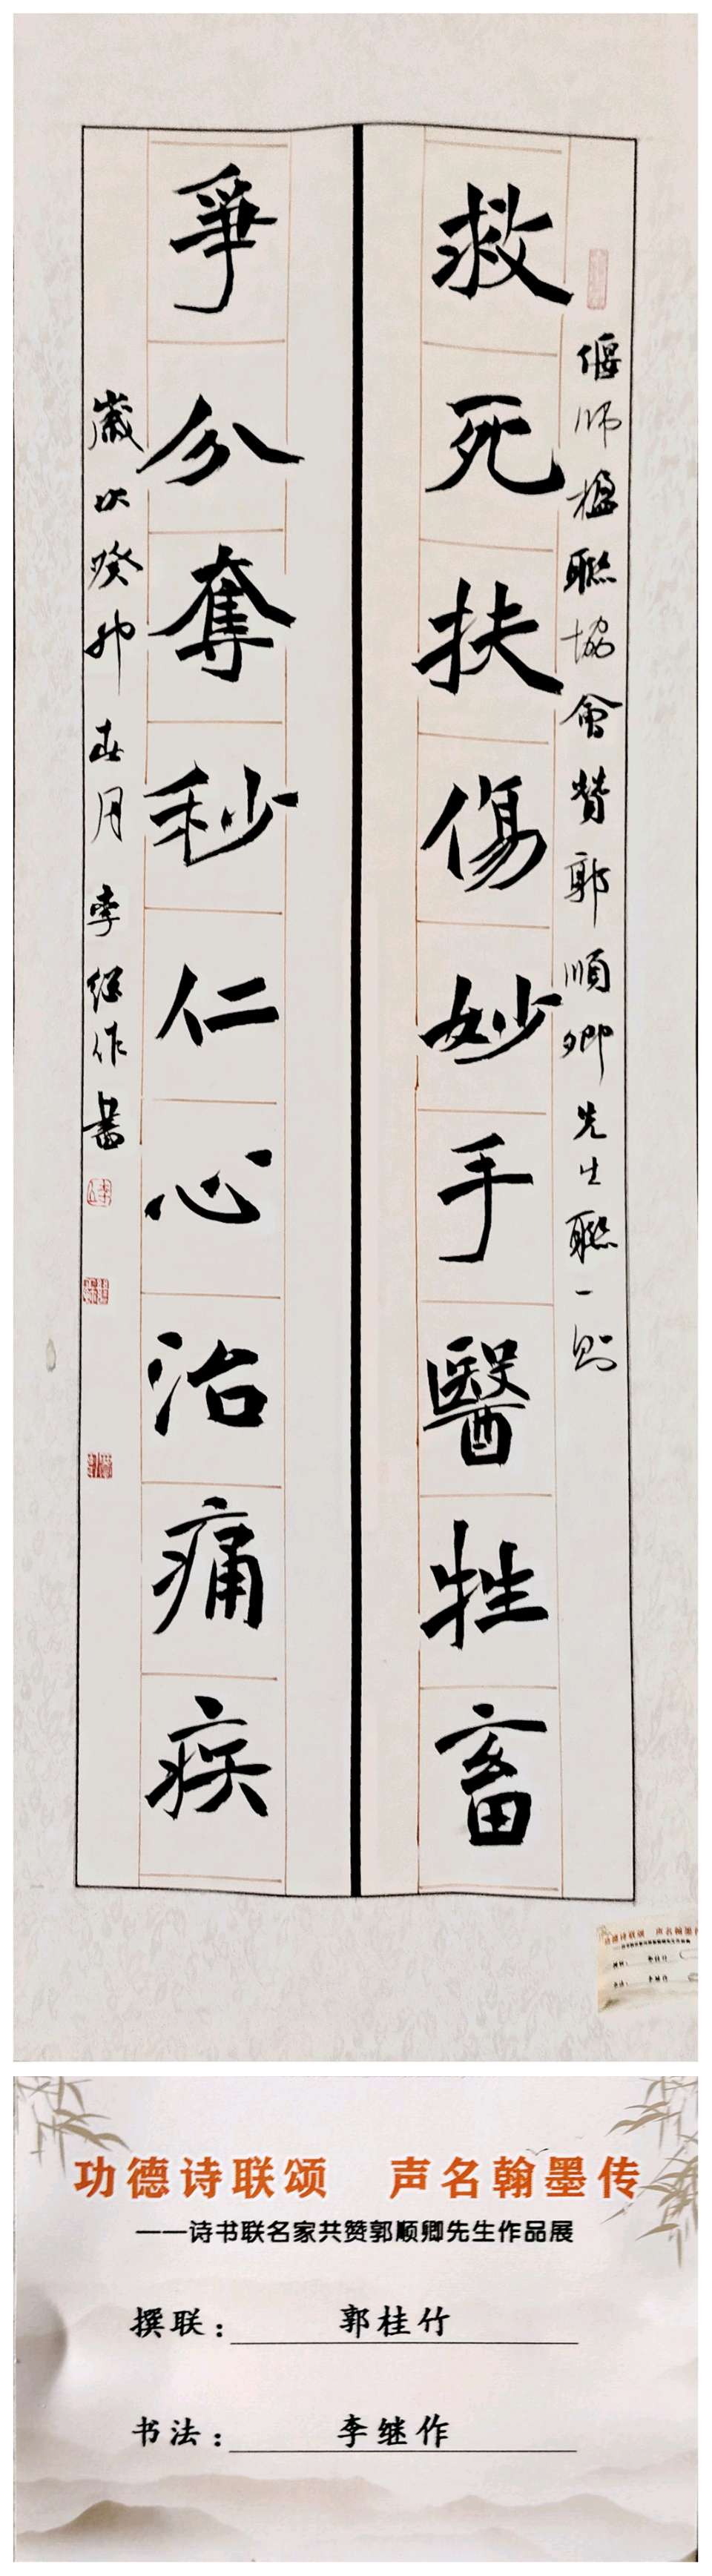 偃师楹聯協會贊郭順卿先生聯一則
救死扶傷妙手醫牲畜
爭分奪秒仁心治痛疾
歲次癸卯春月李继作書
功德诗联颂 声名翰墨传
——诗书联名家共赞郭顺卿先生作品展
撰联：郭桂竹
书法：李继作